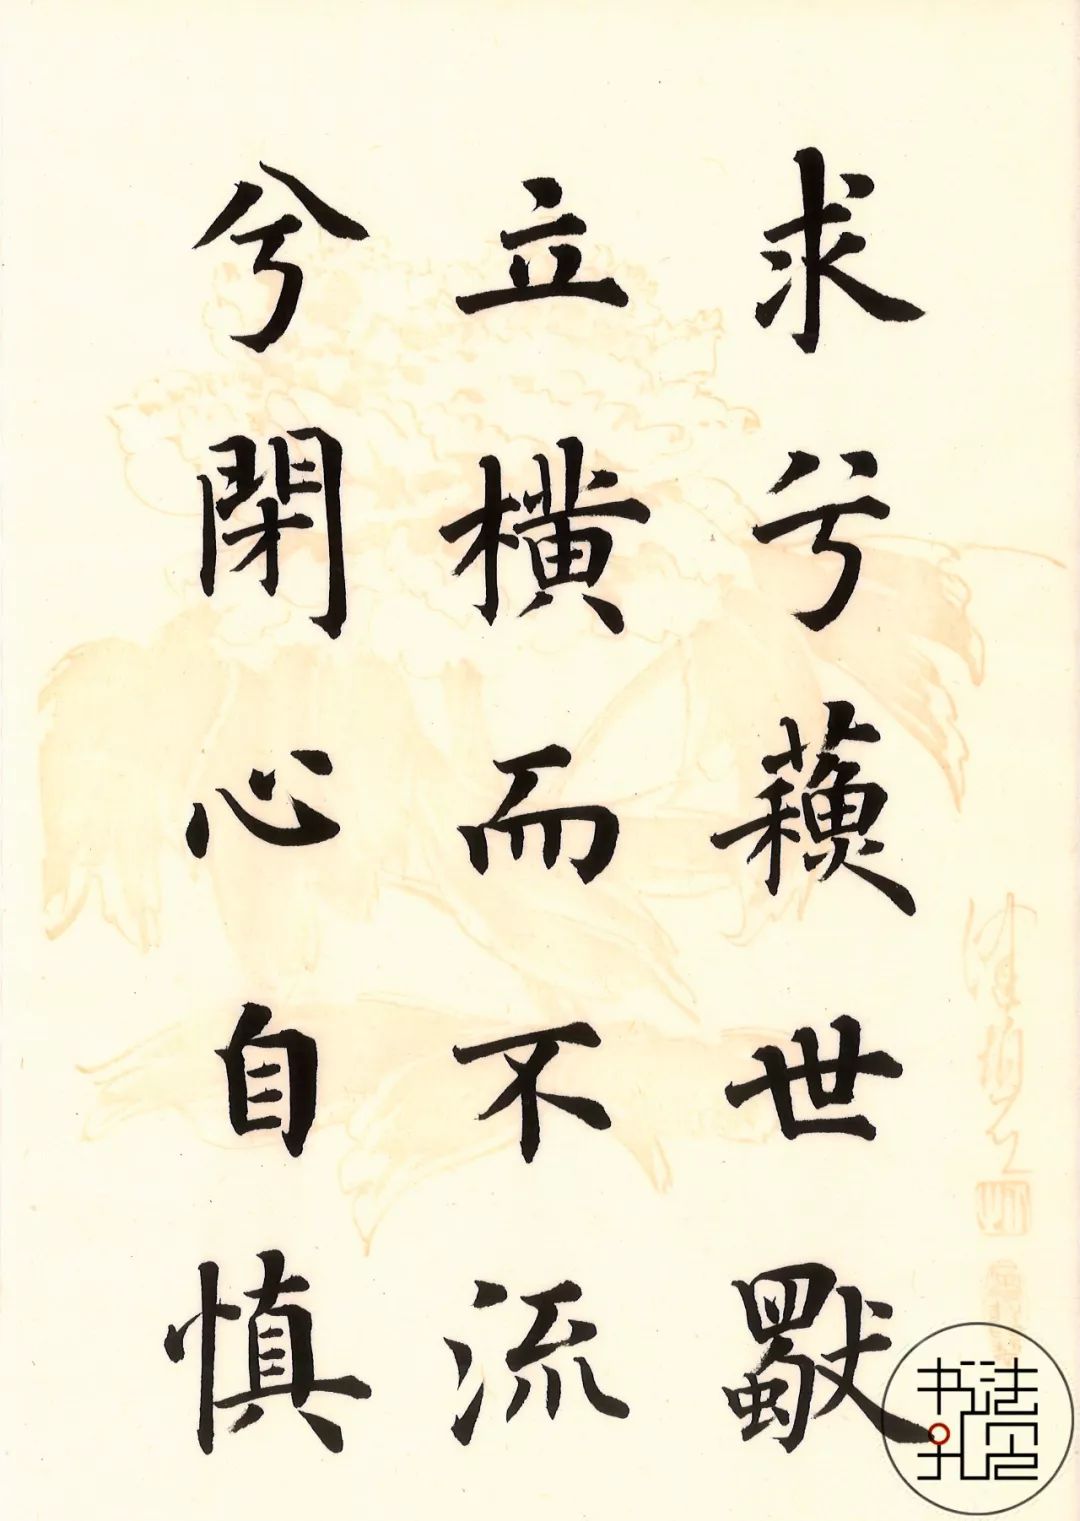 求兮蘓世獨
立橫而不流
兮閉心自慎
书法